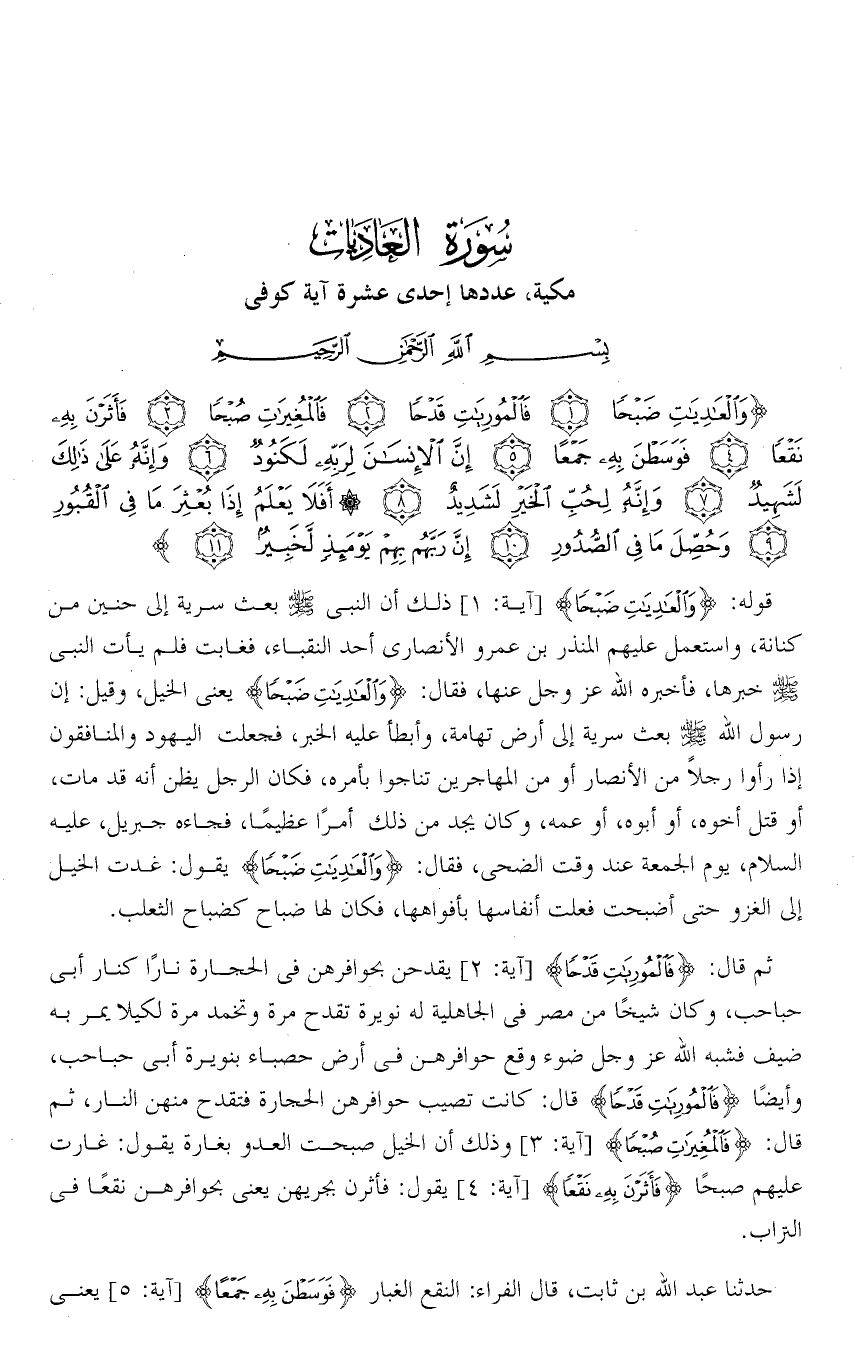 سُورَة العَاديَات
مكية، عددها إحدى عشرة آية كوفى
بِسْمِ ٱللَّهِ ٱلرَّحْمَٰنِ ٱلرَّحِيمِ
﴿وَٱلْعَٰدِيَٰتِ ضَبْحًا ١ فَٱلْمُورِيَٰتِ قَدْحًا ٢ فَٱلْمُغِيرَٰتِ صُبْحًا ٣ فَأَثَرْنَ بِهِۦ
نَقْعًا ٤ فَوَسَطْنَ بِهِۦ جَمْعًا ٥ إِنَّ ٱلْإِنسَٰنَ لِرَبِّهِۦ لَكَنُودٌ ٦ وَإِنَّهُۥ عَلَىٰ ذَٰلِكَ
لَشَهِيدٌ ٧ وَإِنَّهُۥ لِحُبِّ ٱلْخَيْرِ لَشَدِيدٌ ٨ ۞ أَفَلَا يَعْلَمُ إِذَا بُعْثِرَ مَا فِى ٱلْقُبُورِ
٩ وَحُصِّلَ مَا فِى ٱلصُّدُورِ ١٠ إِنَّ رَبَّهُم بِهِمْ يَوْمَئِذٍ لَّخَبِيرٌۢ ١١ ﴾
قوله: ﴿وَٱلْعَٰدِيَٰتِ ضَبْحًا﴾ [آية: ١] ذلك أن النبى ﷺ بعث سرية إلى حنين من
كنانة، واستعمل عليهم المنذر بن عمرو الأنصارى أحد النقباء، فغابت فلم يأت النبى
ﷺ خبرها، فأخبره الله عز وجل عنها، فقال: ﴿وَٱلْعَٰدِيَٰتِ ضَبْحًا﴾ يعنى الخيل، وقيل: إن
رسول الله ﷺ بعث سرية إلى أرض تهامة، وأبطأ عليه الخبر، فجعلت اليهود والمنافقون
إذا رأوا رجلاً من الأنصار أو من المهاجرين تناجوا بأمره، فكان الرجل يظن أنه قد مات،
أو قتل أخوه، أو أبوه، أو عمه، وكان يجد من ذلك أمرًا عظيمًا، فجاءه جبريل، عليه
السلام، يوم الجمعة عند وقت الضحى، فقال: ﴿وَٱلْعَٰدِيَٰتِ ضَبْحًا﴾ يقول: غدت الخيل
إلى الغزو حتى أضبحت فعلت أنفاسها بأفواهها، فكان لها ضباح كضباح الثعلب.
ثم قال: ﴿فَٱلْمُورِيَٰتِ قَدْحًا﴾ [آية: ٢] يقدحن بحوافرهن فى الحجارة نارًا كنار أبى
حباحب، وكان شيخًا من مضر فى الجاهلية له نويرة تقدح مرة وتخمد مرة لكيلا يمر به
ضيف فشبه الله عز وجل ضوء وقع حوافرهن فى أرض حصباء بنويرة أبى حباحب،
وأيضًا ﴿فَٱلْمُورِيَٰتِ قَدْحًا﴾ قال: كانت تصيب حوافرهن الحجارة فتقدح منهن النار، ثم
قال: ﴿فَٱلْمُغِيرَٰتِ صُبْحًا﴾ [آية: ٣] وذلك أن الخيل صبحت العدو بغارة يقول: غارت
عليهم صبحًا ﴿فَأَثَرْنَ بِهِۦ نَقْعًا﴾ [آية: ٤] يقول: فأثرن بجريهن يعنى بحوافرهن نقعًا فى
التراب.
حدثنا عبد الله بن ثابت، قال الفراء: النقع الغبار ﴿فَوَسَطْنَ بِهِۦ جَمْعًا﴾ [آية: ٥] يعنى